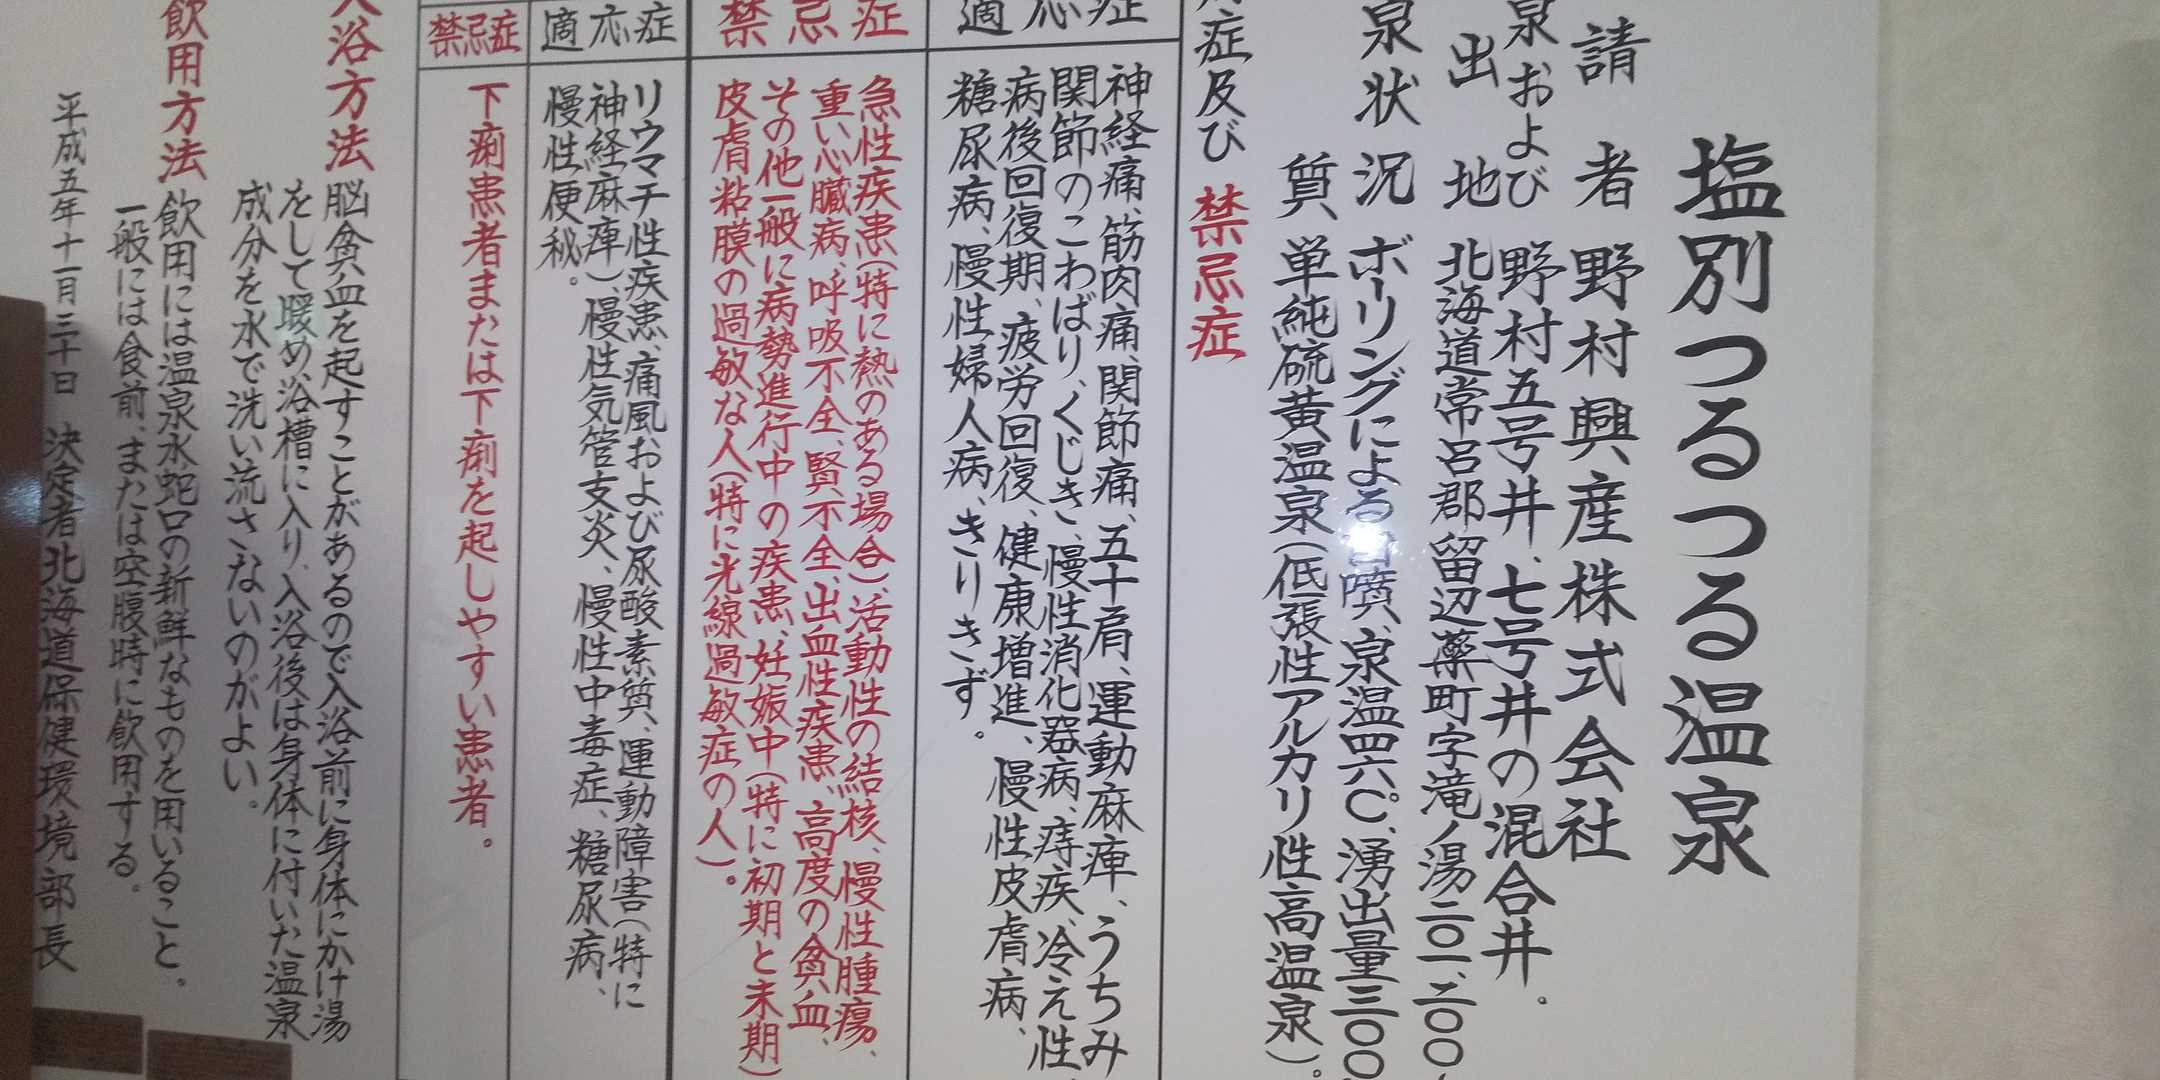 塩別つるつる温泉
請者 野村興産株式会社
泉および 野村五号井、七号井の混合井。
出地 北海道常呂郡留辺蘂町字滝ノ湯二〇一、二〇〇
泉状況 ボーリングによる自噴、泉温四六℃、湧出量三〇〇
質、単純硫黄温泉(低張性アルカリ性高温泉)。
症及び 禁忌症
適応症
神経痛、筋肉痛、関節痛、五十肩、運動麻痺、うちみ
関節のこわばり、くじき、慢性消化器病、痔疾、冷え性、
病後回復期、疲労回復、健康増進、慢性皮膚病、
糖尿病、慢性婦人病、きりきず。
禁忌症
急性疾患(特に熱のある場合)、活動性の結核、慢性腫瘍、
重い心臓病、呼吸不全、賢不全、出血性疾患、高度の貧血、
その他一般に病勢進行中の疾患、妊娠中(特に初期と末期)
皮膚粘膜の過敏な人(特に光線過敏症の人)。
適応症
リウマチ性疾患、痛風および尿酸素質、運動障害(特に
神経麻痺)、慢性気管支炎、慢性中毒症、糖尿病、
慢性便秘。
禁忌症
下痢患者または下痢を起しやすい患者。
入浴方法 脳貧血を起すことがあるので入浴前に身体にかけ湯
をして暖め浴槽に入り、入浴後は身体に付いた温泉
成分を水で洗い流さないのがよい。
飲用方法 飲用には温泉水蛇口の新鮮なものを用いること。
一般には食前、または空腹時に飲用する。
平成五年十一月三十日 決定者北海道保健環境部長